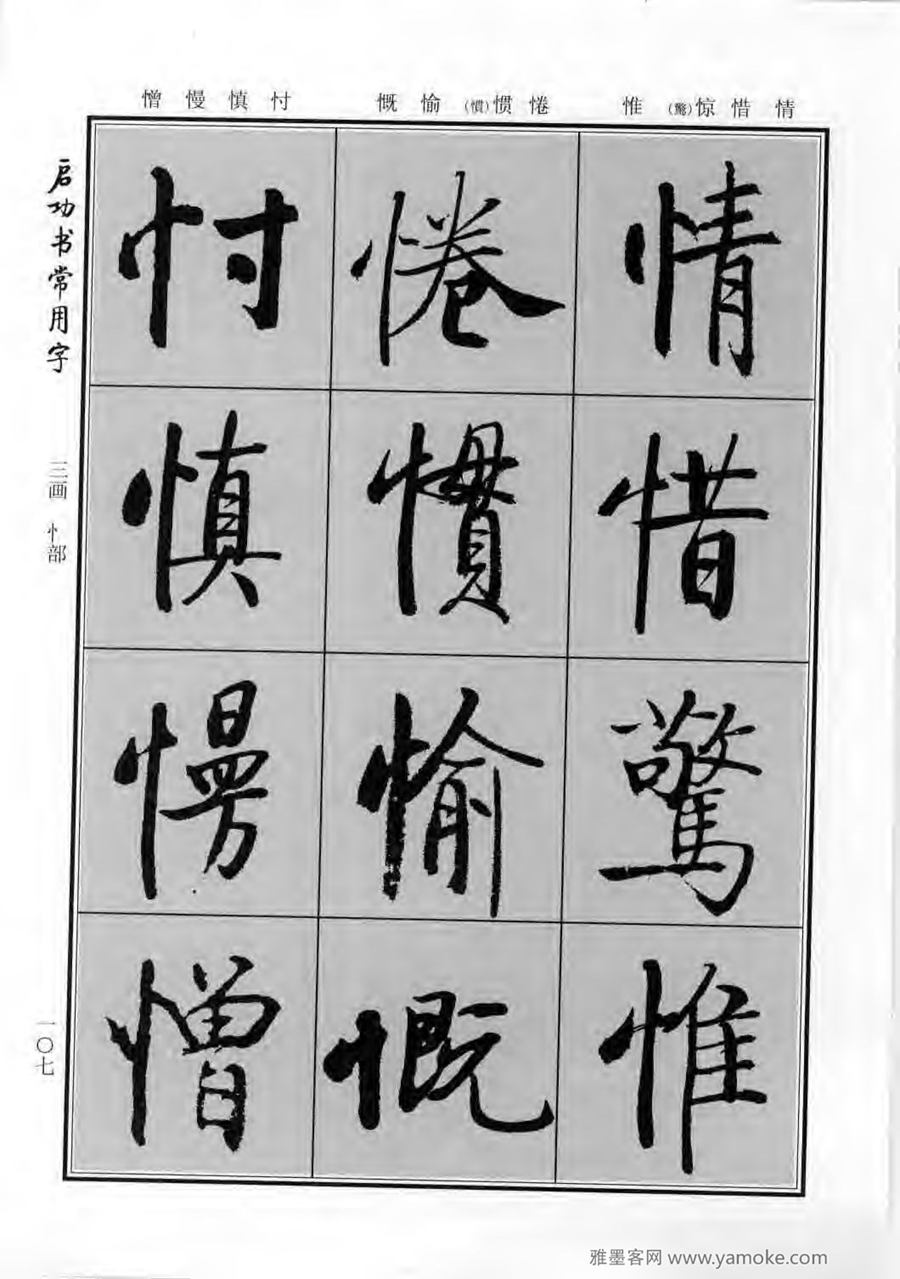 情惜惊(驚)惟
惓惯(慣)愉慨
忖慎慢憎
情
惜
驚
惟
惓
慣
愉
慨
忖
慎
慢
憎
启功书常用字
三画 忄部
一〇七
雅墨客网 www.yamoke.com